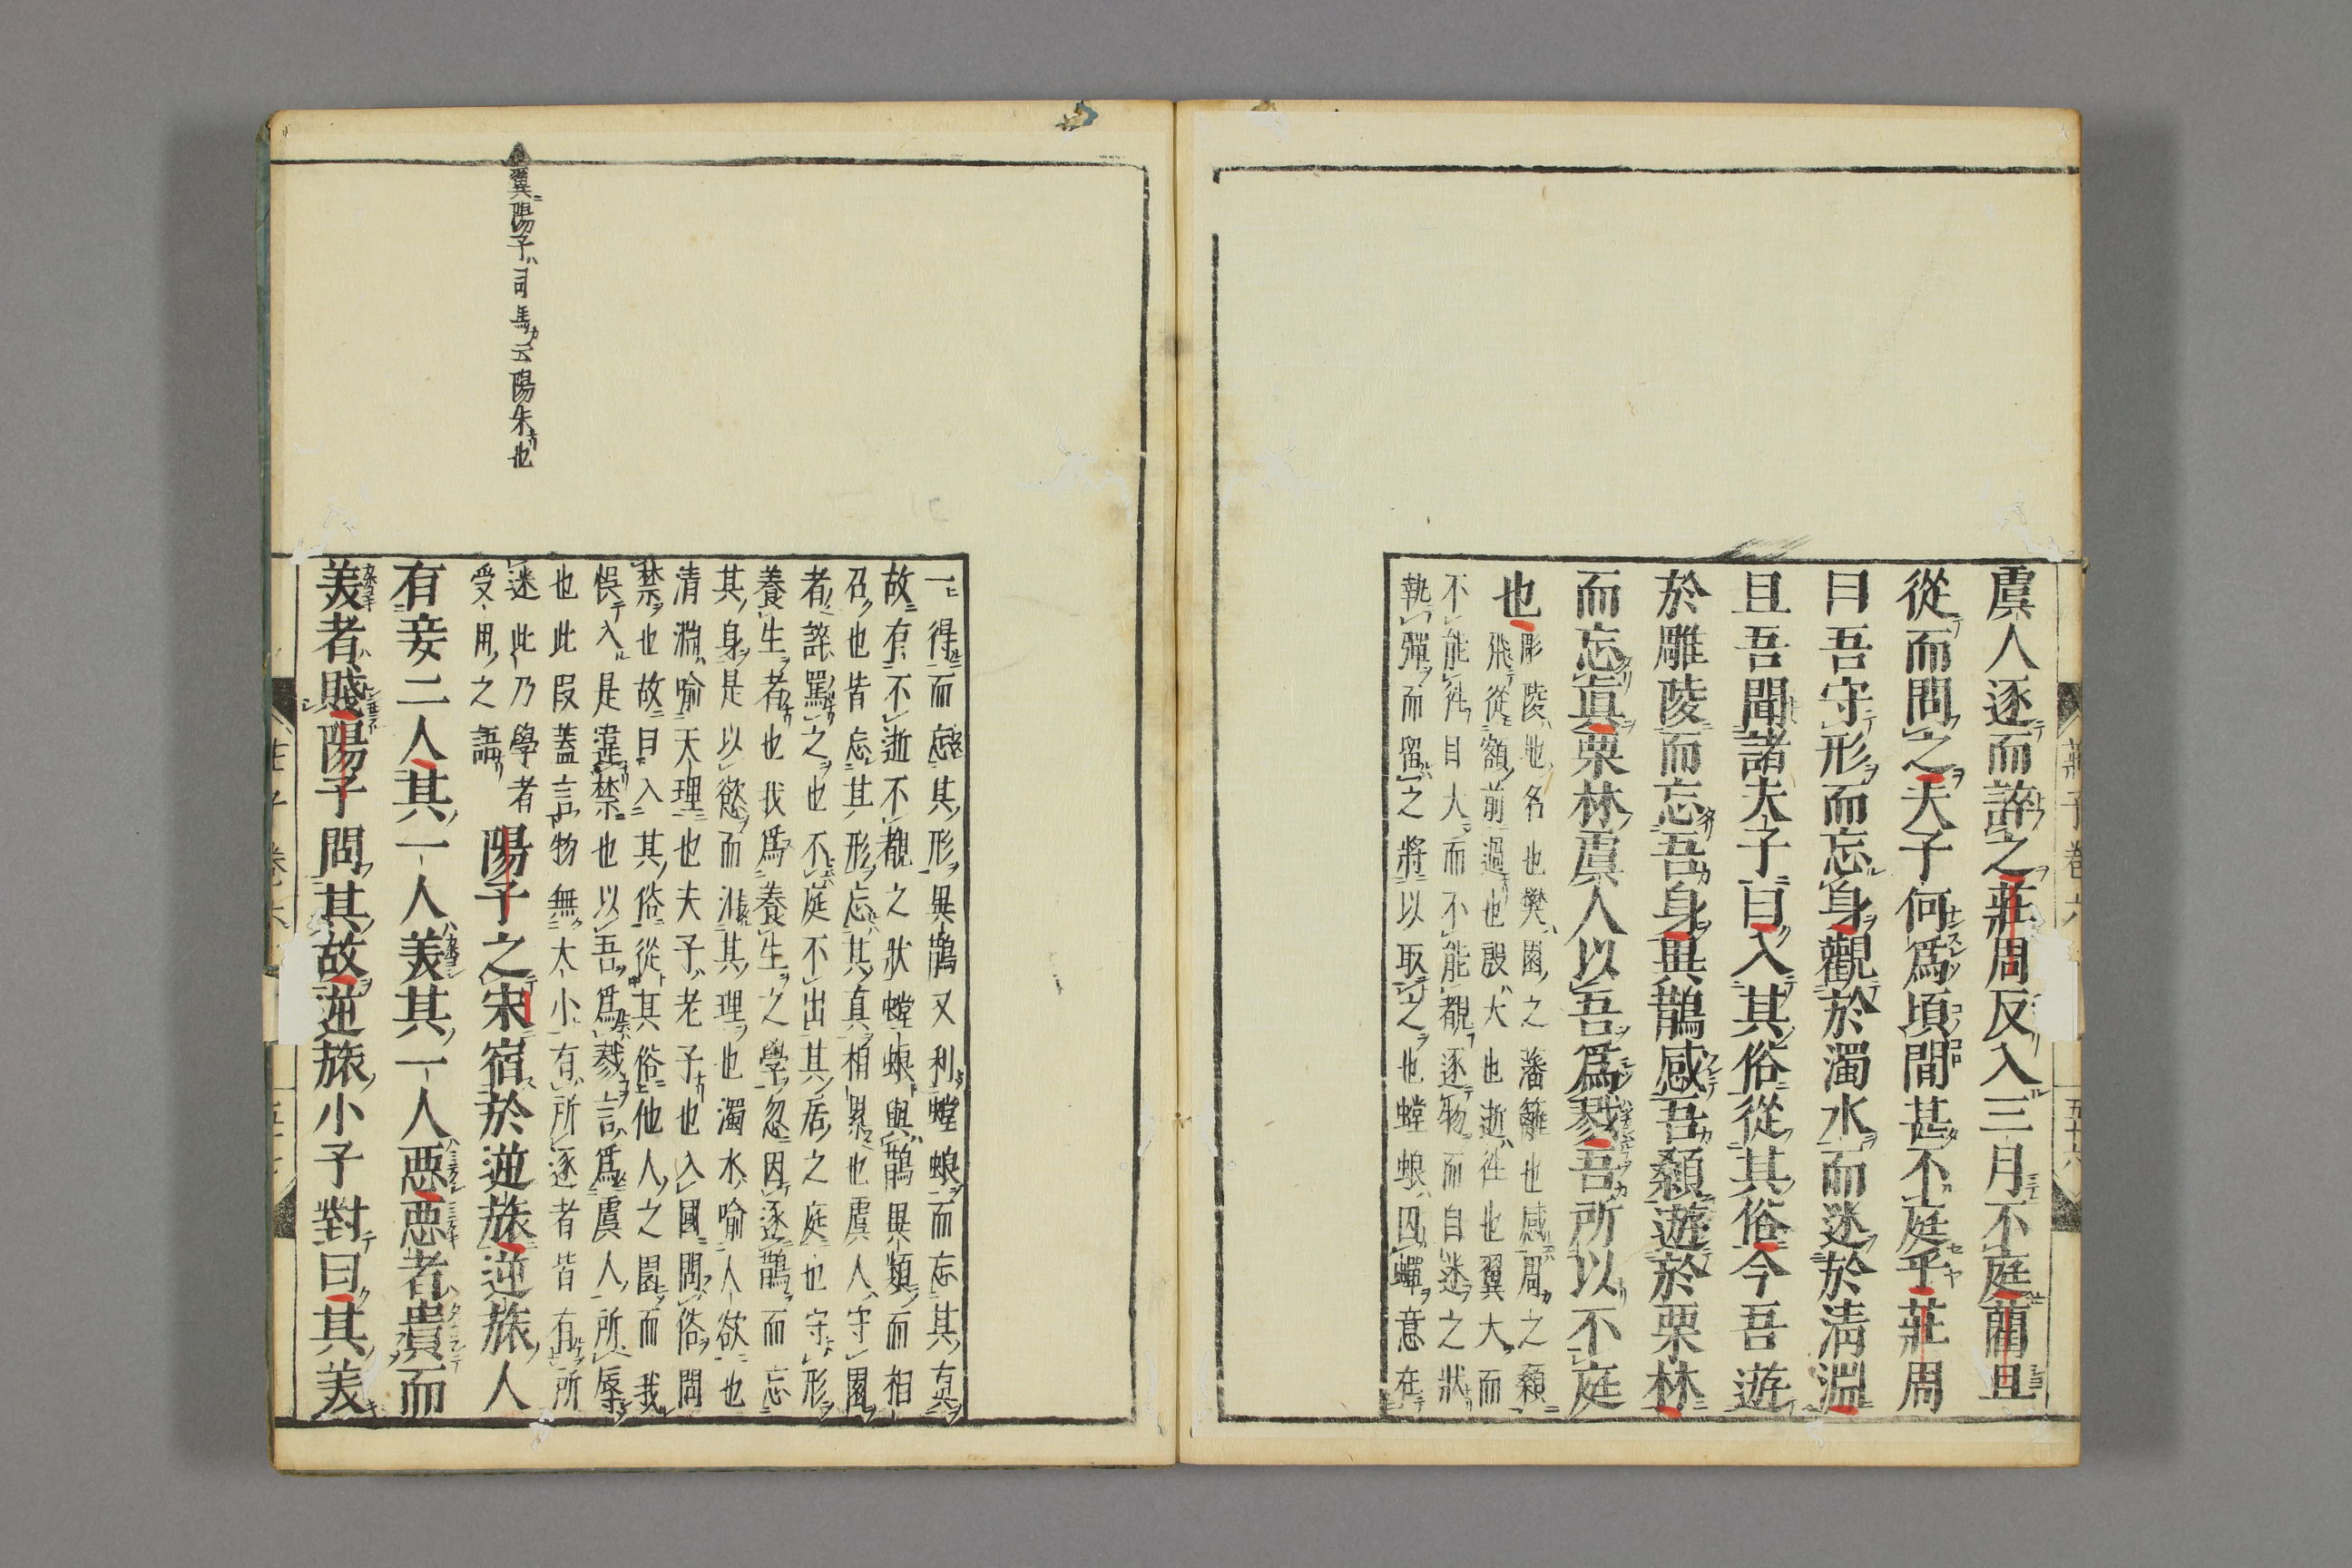 虞人逐而誶之莊周反入三月不庭藺且
從而問之夫子何爲頃間甚不庭乎莊周
曰吾守形而忘身觀於濁水而迷於淸淵
且吾聞諸夫子曰入其俗從其俗今吾遊
於雕陵而忘吾身異鵲感吾顙遊於栗林
而忘眞栗林虞人以吾爲戮吾所以不庭
也
彫陵地名也樊園之藩籬也感周之顙
飛從額前過也殷大也逝往也翼大而
不能往目大而不能覩逐物而自迷之狀
執彈而留之將以取之也螳蜋因蟬意在
一得而忘其形異鵲又利螳蜋而忘其眞
故有不逝不覩之狀螳蜋與鵲異類而相
召也皆忘其形忘其真相累也虞人守園
者誶罵之也不庭不出其居之庭也守形
養生者也我爲養生之學忽因逐鵲而忘
其身是以慾而汨其理也濁水喻人欲也
清淵喻天理也夫子老子也入國問俗問
禁也故曰入其俗從其俗他人之園而我
悞入是違禁也以吾爲戮言爲虞人所辱
也此叚蓋言物無大小有所逐者皆有所
迷此乃學者
受用之語
陽子之宋宿於逆旅逆旅人
有妾二人其一人美其一人惡惡者貴而
美者賤陽子問其故逆旅小子對曰其美
翼陽子司馬云陽朱也
莊子卷六
五十六